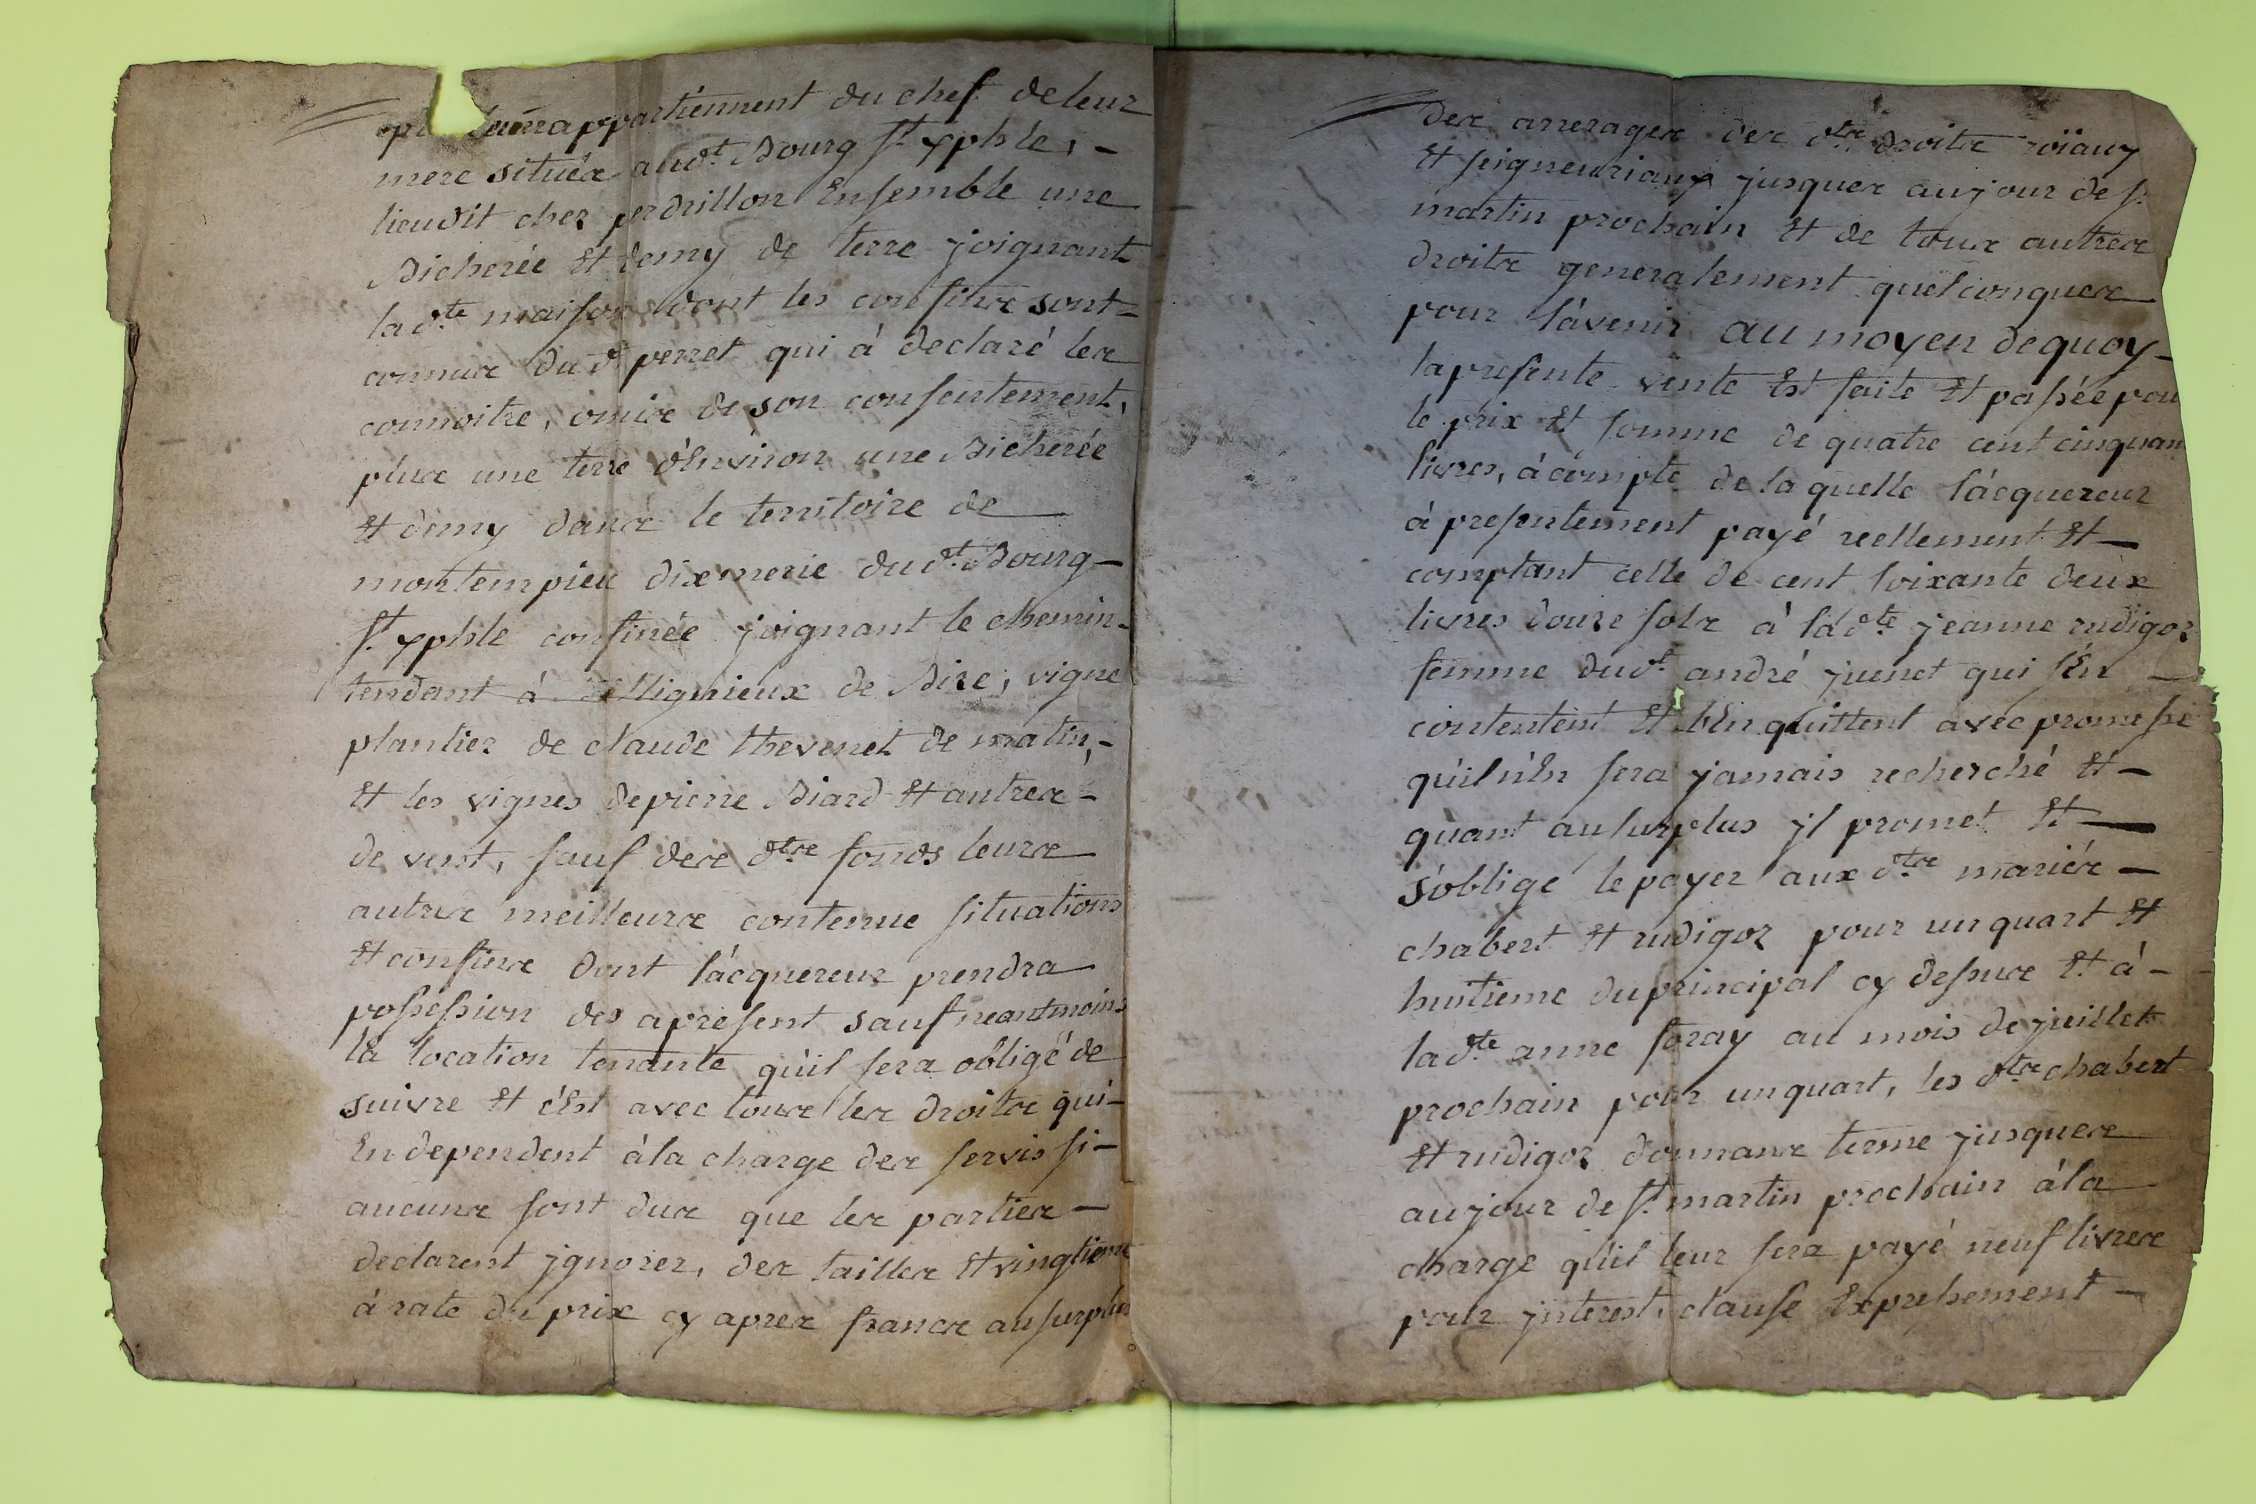 appartiennent du chef de leur
mere situés aud.t Bourg S.t xphle, -
lieudit chez perdrillon Ensemble une
Bicherée Et demy de terre joignant
la d.te maison dont les confins sont -
connus dud.t perret qui à declaré les
connoitre, omis de son consentement,
plus une terre d'Environ une Bicherée
Et demy dans le territoire de
montempieu dixmerie dud.t Bourg -
S.t xphle confinée joignant le chemin -
tendant à Illignieux de Bize, vigne
plantier de claude thevenet de matin, -
Et les vignes de pierre Biard Et autres -
de vent, sauf des d.tes fonds leurs
autres meilleurs contenue situations
Et confins dont l'acquereur prendra
possession des apresent sauf neantmoins
la location tenante qu'il sera obligé de
suivre Et c'Est avec tous les droits qui -
En dependent à la charge des servis si -
aucuns sont dus que les parties -
declarent jgnorer, des tailles Et vingtieme
à rate du prix cy apres francs au surplus
des arrerages des d.ts droits roïaux
Et seigneuriaux jusques au jour de S.t
martin prochain Et de tous autres
droits generalement quelconques
pour l'avenir au moyen de quoy -
la presente vente Est faite Et passée pou
le prix Et somme de quatre cent cinquan
livres, à compte de la quelle l'acquereur
à presentement payé reellement Et -
comptant celle de cent soixante deux
livres douze sols à la d.te jeanne rudigoz
femme dud.t andré juenet qui s'En -
contentent Et l'En quittent avec promesse
qu'il n'En sera jamais recherché Et -
quant au surplus jl promet Et -
s'oblige le payer aux d.ts mariés -
chabert Et rudigoz pour un quart Et
huitieme du principal cy dessus Et à -
la d.te anne foray au mois de juillet
prochain pour un quart, les d.ts chabert
Et rudigoz donnans terme jusques
au jour de S.t martin prochain à la
charge qu'il leur sera payé neuf livres
pour jnterest, clause Expressement -